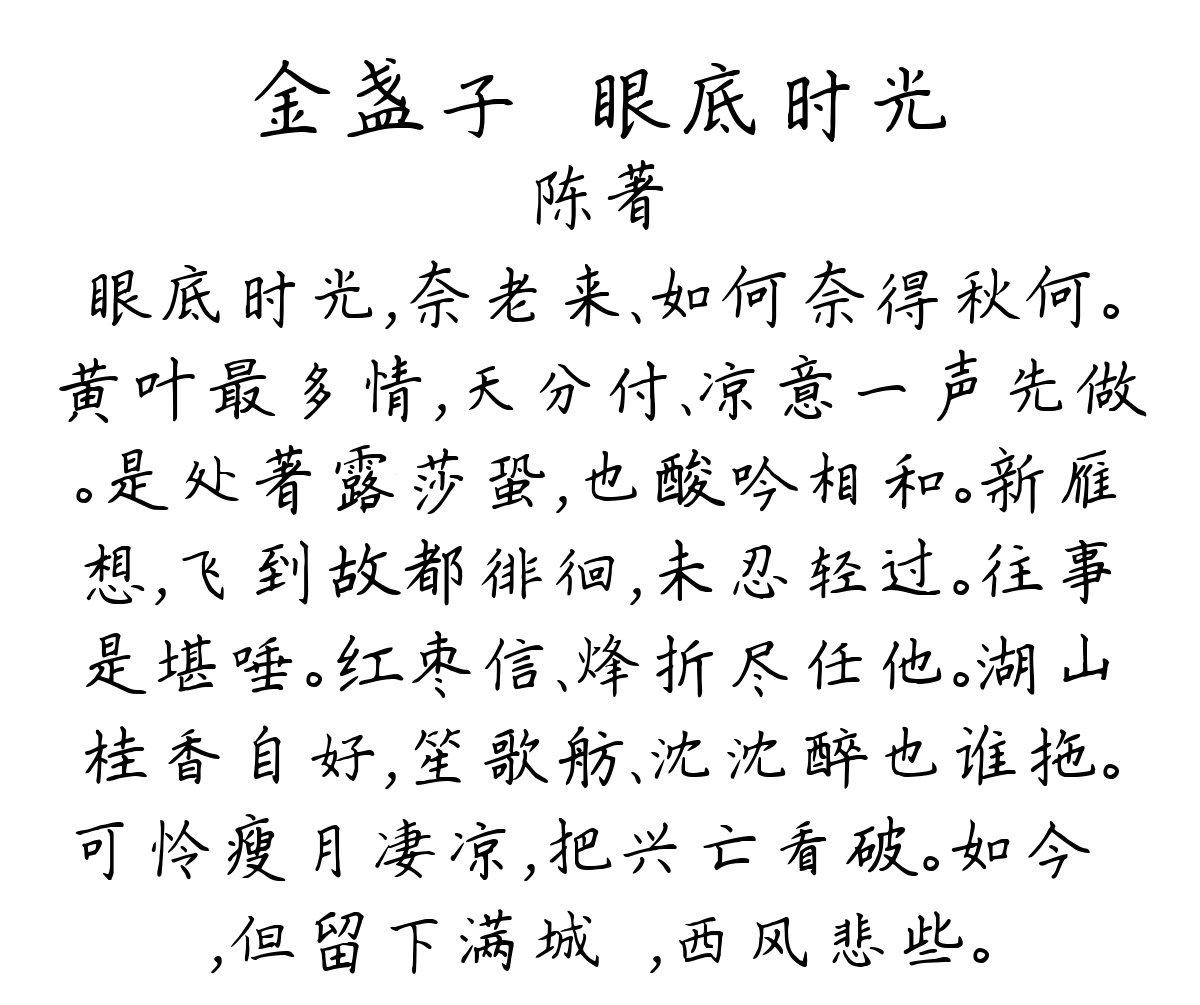 金盏子 眼底时光
陈著
眼底时光,奈老来、如何奈得秋何。
黄叶最多情,天分付、凉意一声先做
。是处著露莎蛩,也酸吟相和。新雁
想,飞到故都徘徊,未忍轻过。往事
是堪唾。红枣信、烽折尽任他。湖山
桂香自好,笙歌舫、沈沈醉也谁拖。
可怜瘦月凄凉,把兴亡看破。如今
,但留下满城 ,西风悲些。